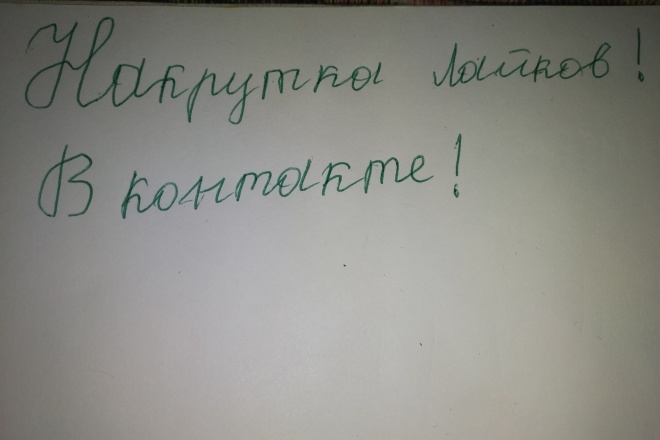 Накрутка лайков!
В контакте!